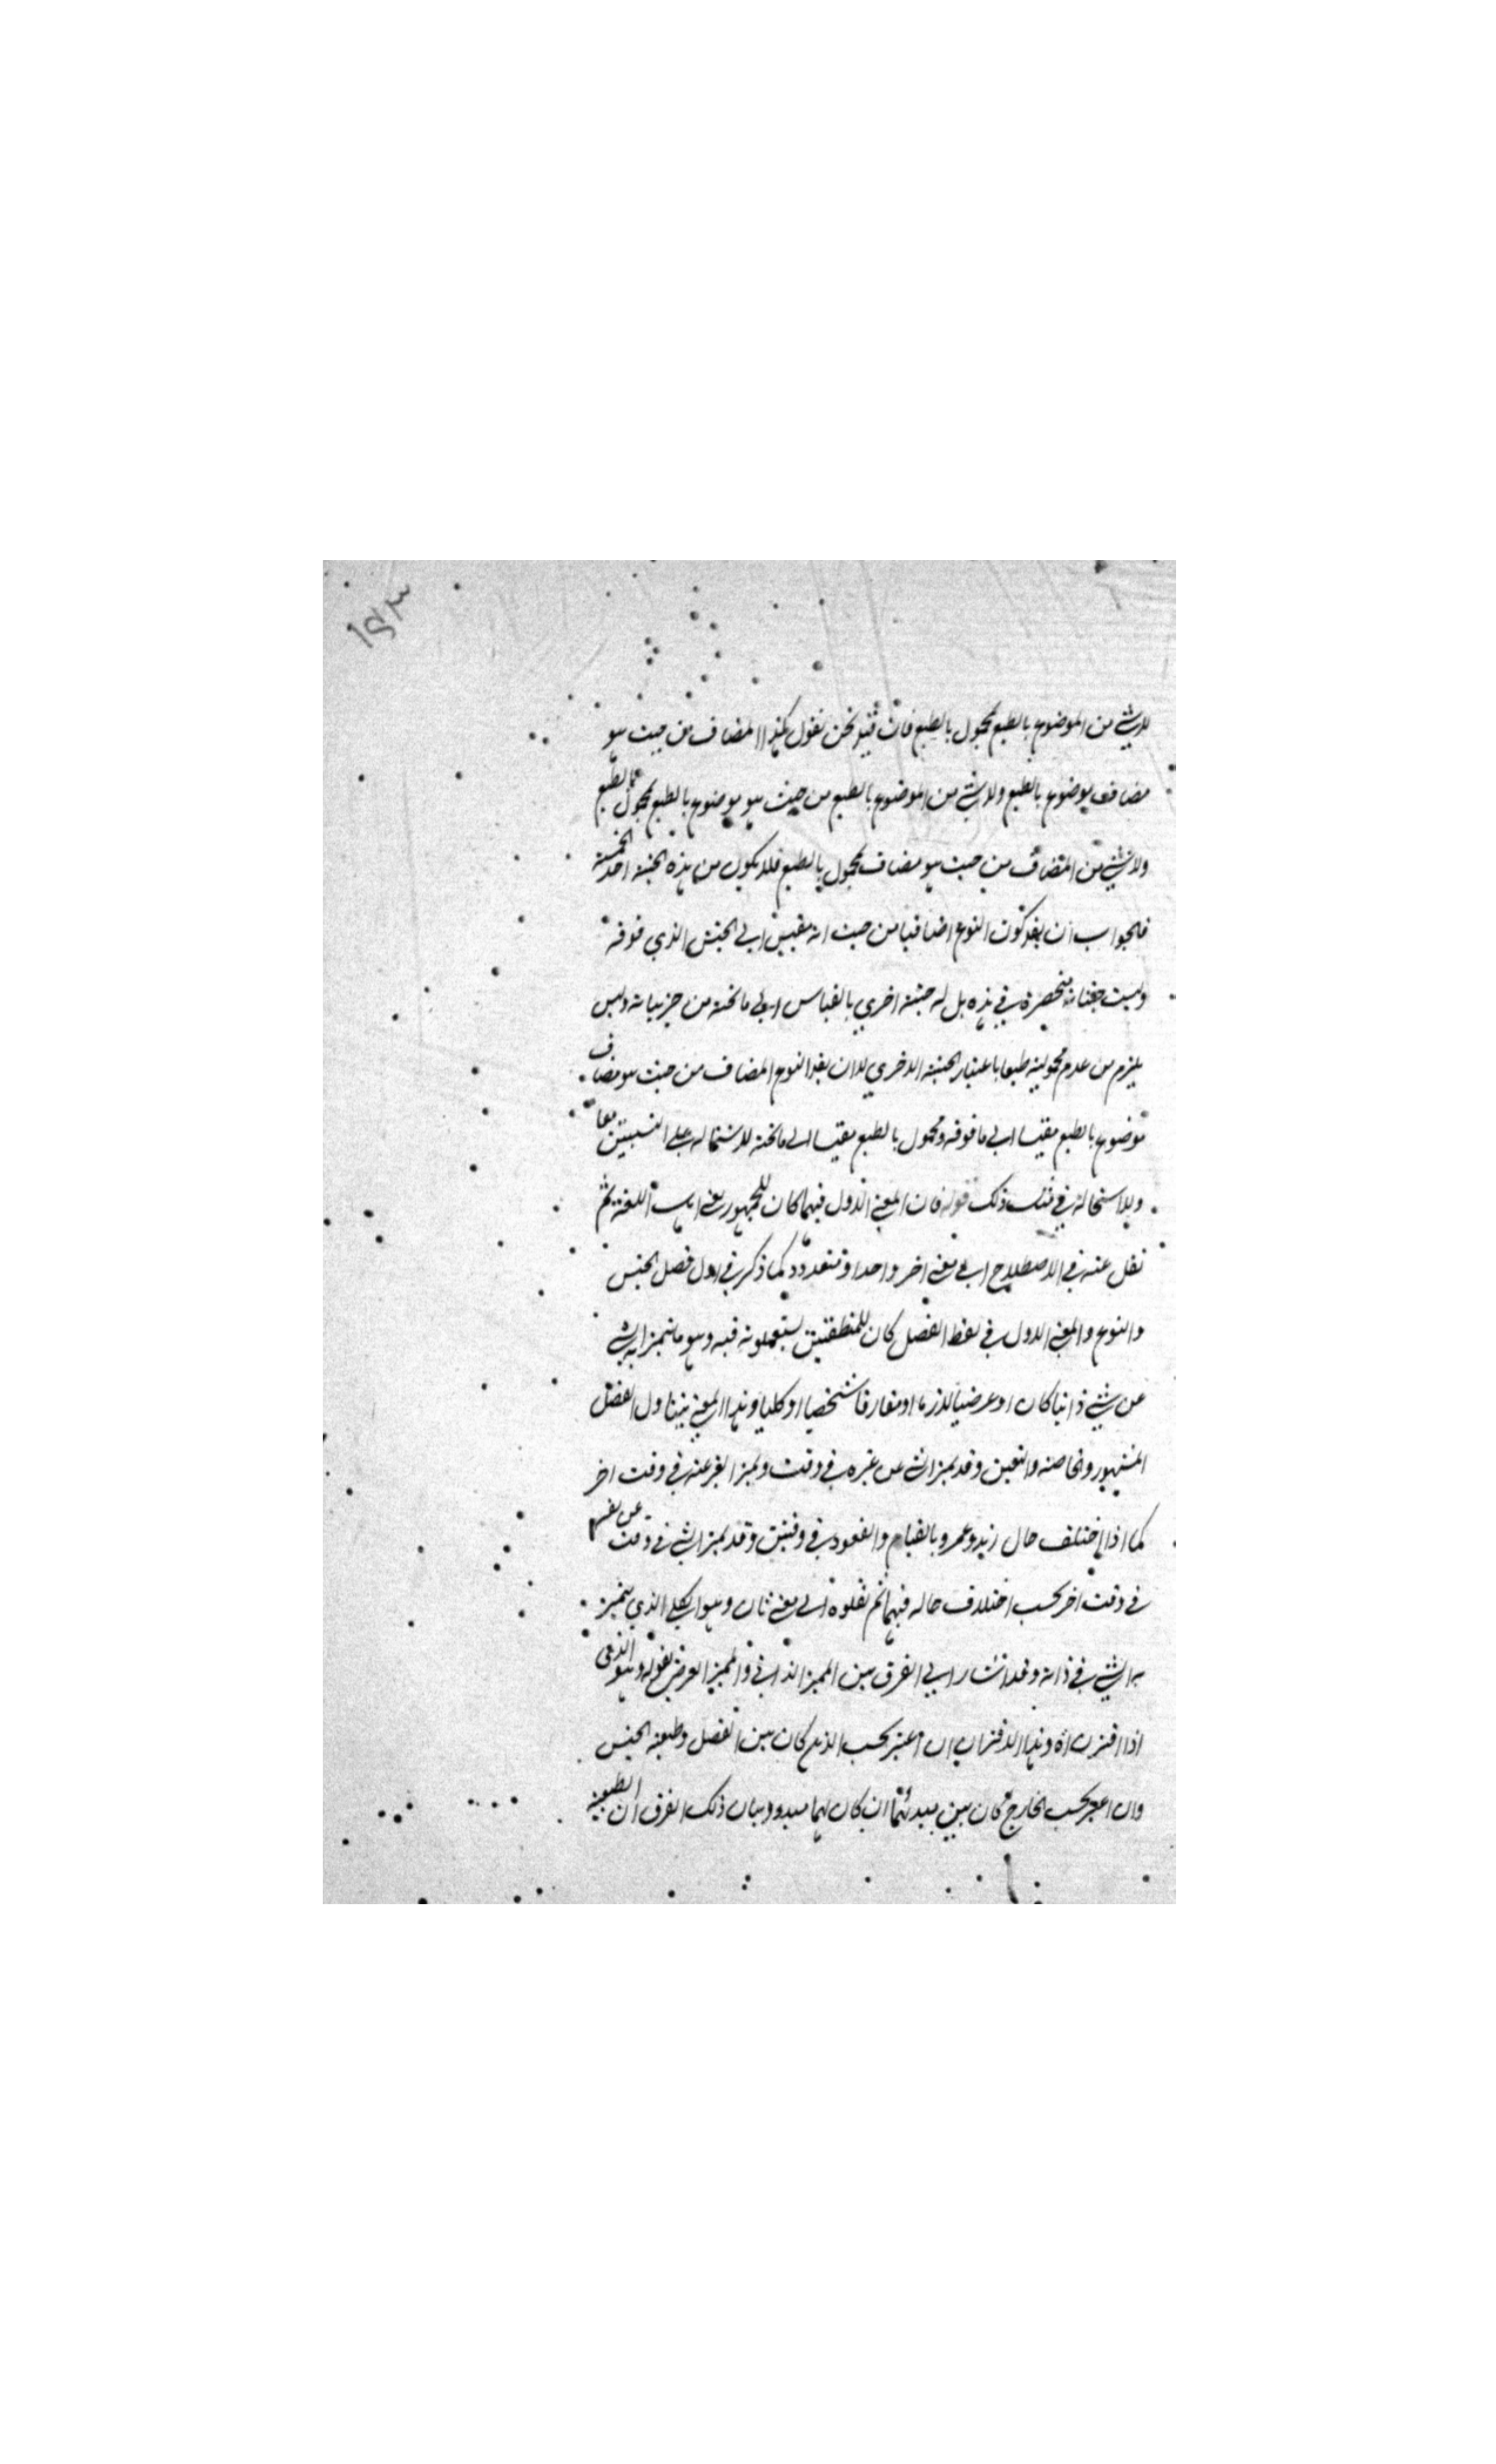 ١٤٣
لا شي من الموضوع بالطبع بمحمول بالطبع فان قيد نحن نقول هكذا المضاف من حيث هو
مضاف موضوع بالطبع ولا شي من الموضوع بالطبع من حيث هو موضوع بالطبع بمحمول بالطبع
ولا شي من المضاف من حيث هو مضاف بمحمول بالطبع فلا يكون من هذه الحيثية احد الخمسة
فالجواب ان يقد كون النوع اضافيا من حيث انه مقيس الى الجنس الذي فوقه
وليست منحصرة في هذه بل له حيثية اخري بالقياس الى ما تحته من جزيياته وليس
يلزم من عدم محموليته طبعا باعتبار الحيثية الاخري لان يقد النوع المضاف من حيث هو مضاف
موضوع بالطبع مقيسا الى ما فوقه ومحمول بالطبع مقيسا الى ما تحته لاشتماله على النسبتين معا
ولا استحالة في ذلك قوله فان المعنى الاول فيهما كان للجمهور يعني اهل اللغة ثم
نقل عنه في الاصطلاح الى معنى اخر واحد او متعدد كما ذكر في اول فصل الجنس
والنوع والمعنى الاول في لفظ الفصل كان للمنطقيين يستعملونه فيه وهو ما يتميز به شي
عن شي ذاتيا كان او عرضيا لازما او مفارقا شخصيا او كليا وهذا المعنى يتناول الفصل
المشهور والخاصة والتعين وقد يميز الشي عن غيره في وقت ويميز الغير عنه في وقت اخر
كما اذا اختلف حال زيد وعمرو بالقيام والقعود في وقتين وقد يميز الشي في وقت عن نفسه
في وقت اخر بحسب اختلاف حاله فيهما ثم نقلوه الى معنى ثان وهو الكلي الذي يتميز
به الشي في ذاته وقد اشار الى الفرق بين المميز الذاتي والمميز العرضي بقوله وهو الذي
اذا اقترن اه وهذا الاقتران ان اعتبر بحسب الذهن كان بين الفصل وطبيعة الجنس
وان اعتبر بحسب الخارج كان بين مبدئهما ان كان لهما مبدو وبيان ذلك الفرق ان الطبيعة